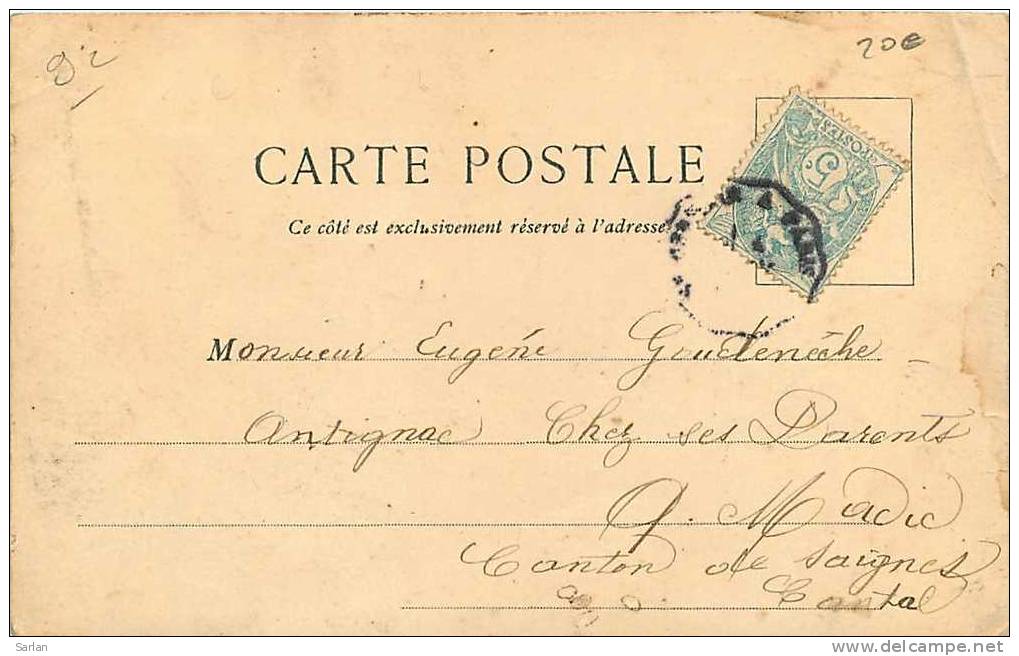 92
20€
CARTE POSTALE
POSTES
5
Ce côté est exclusivement réservé à l'adresse
Monsieur Eugéne Goudenèche
Antignac Chez ses Parents
A. Madic
Canton de Saignes
Cantal
Sarlan
www.delcampe.net